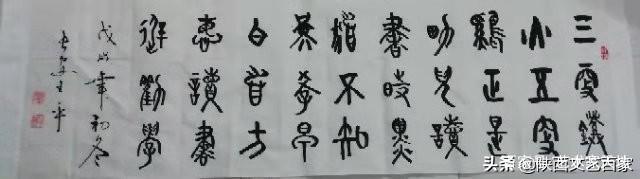 三更燈
火五更
鷄正是
男兒讀
書時黑
髮不知
勤學早
白首方
悔讀書
遲勸學
戊戌年初冬
头条 @陕西文艺百家